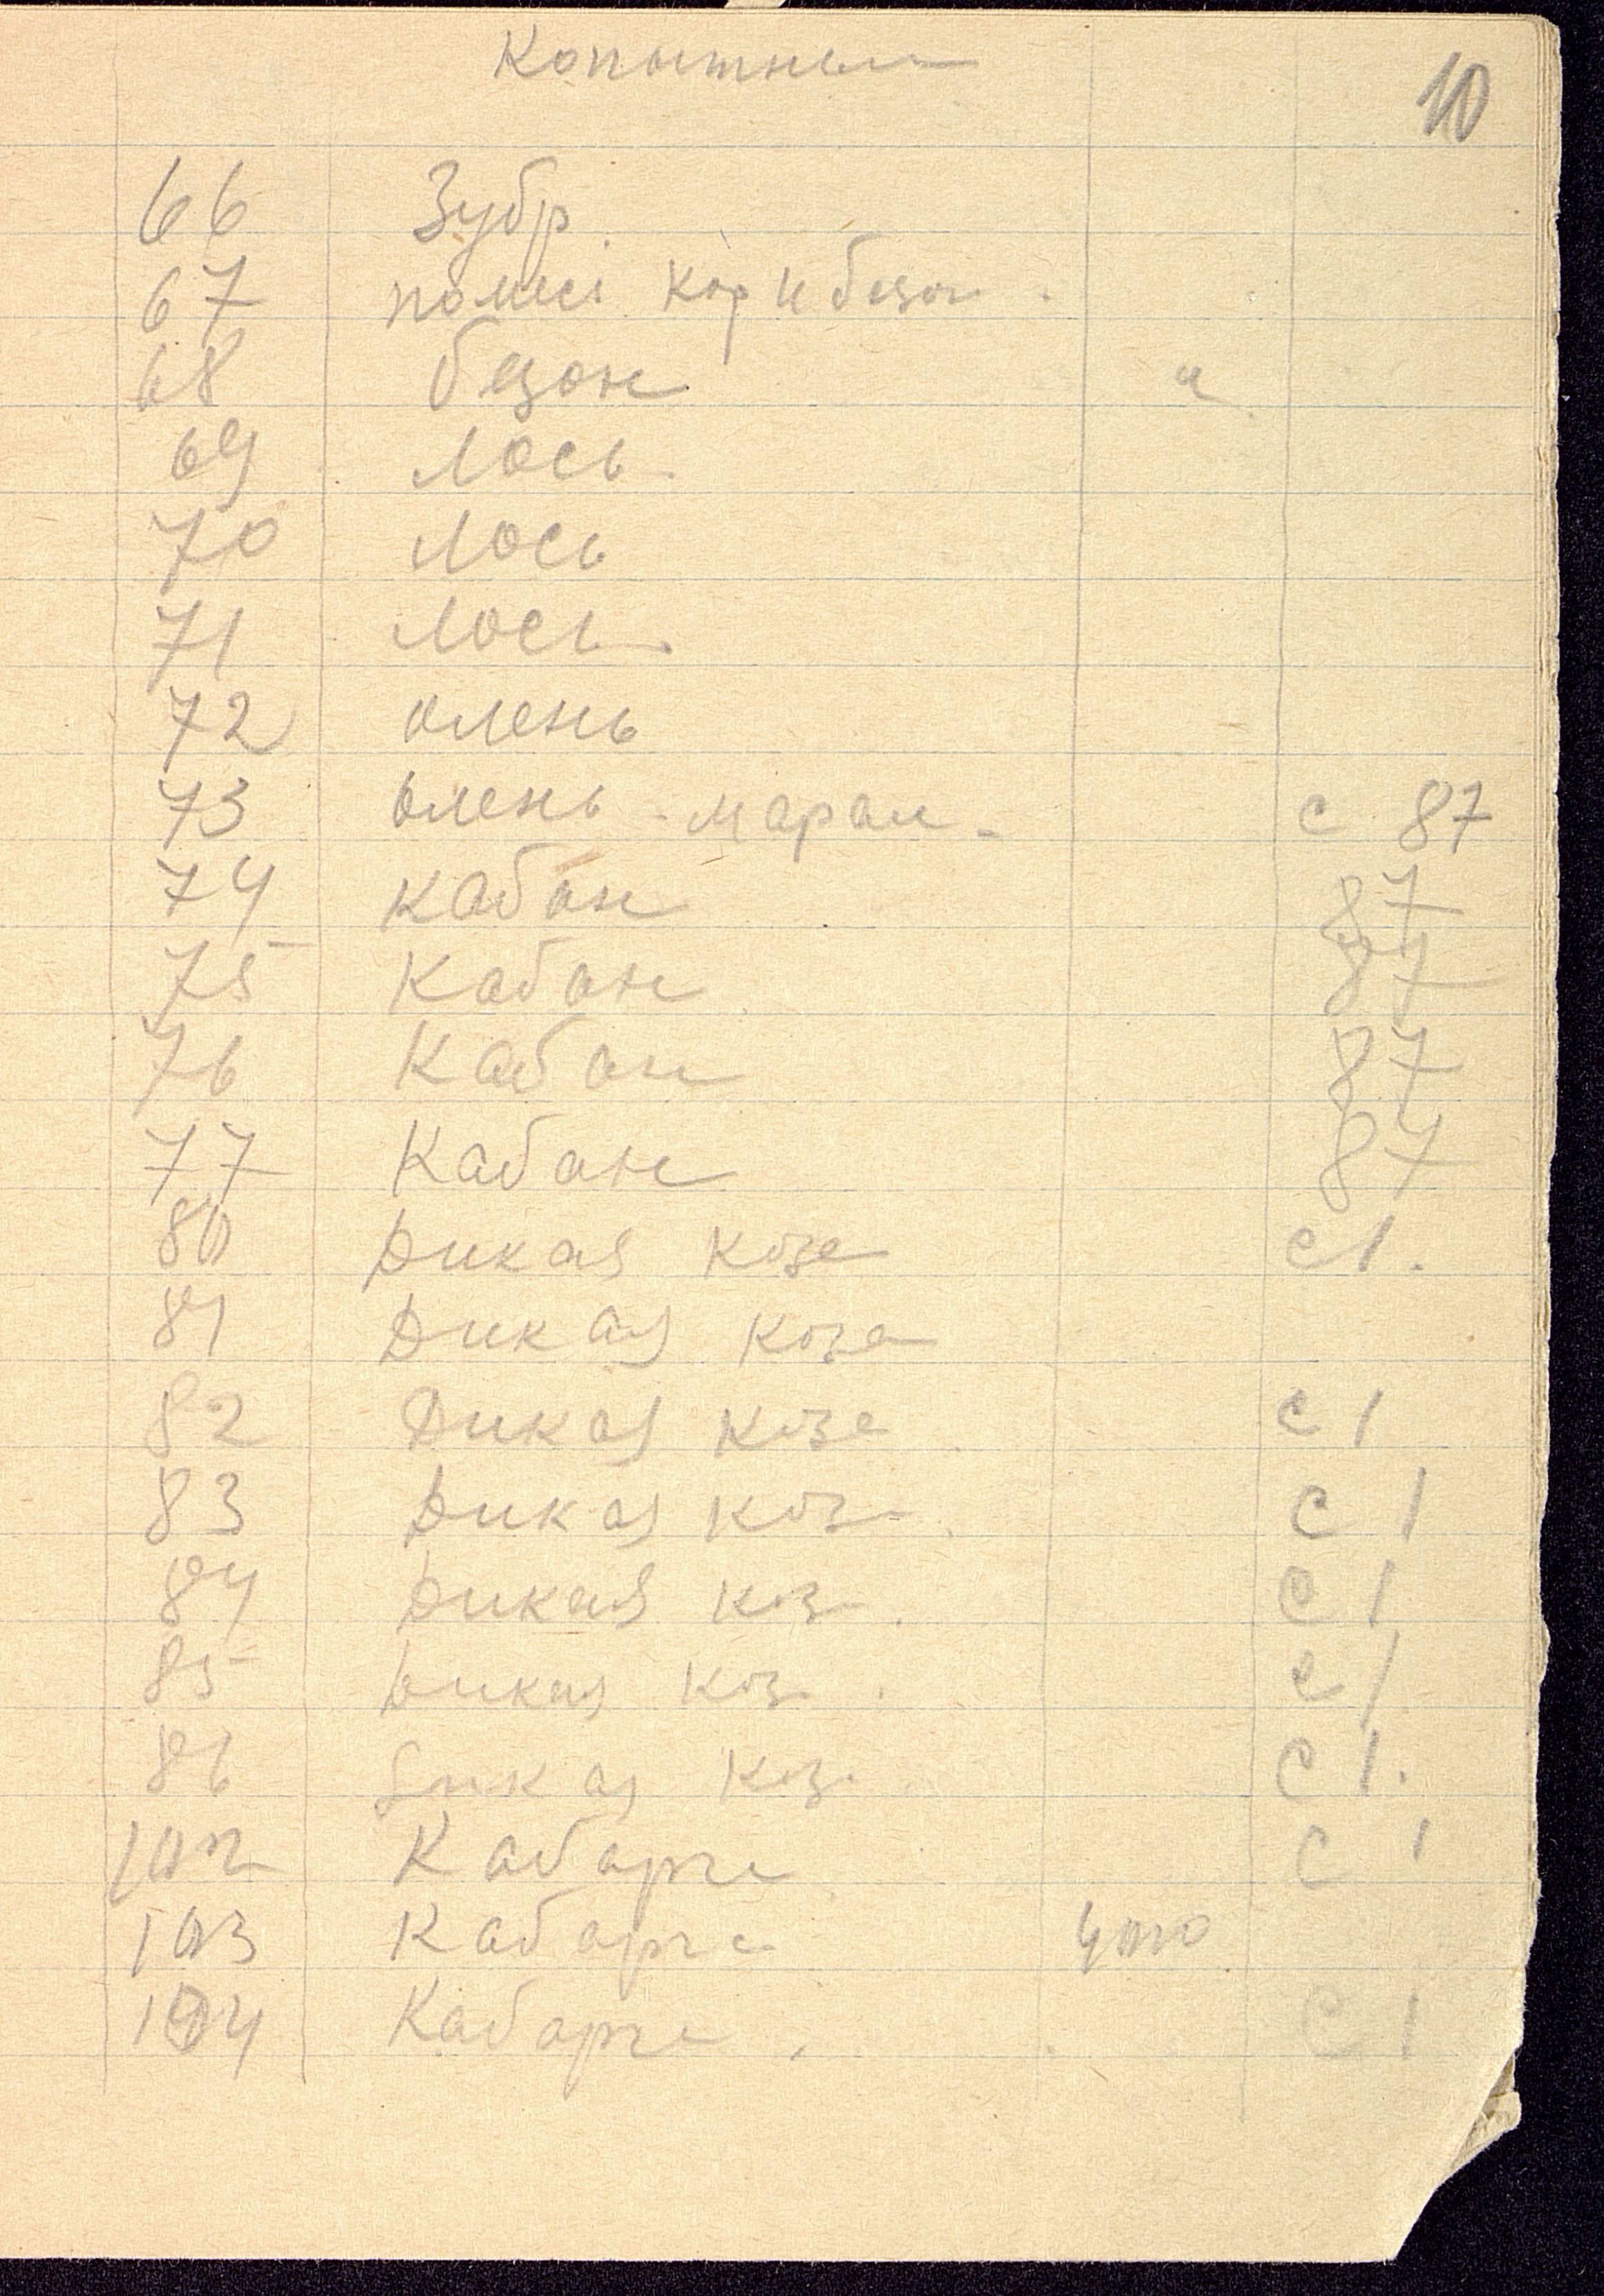 Копытные
10
66 Зубр.
67 помесь кор и бизон.
68 бизон "
69 Лось
70 Лось
71 Лось
72 олень
73 олень - марал - с 87
74 Кабан 87
75 Кабан 87
76 Кабан 87
77 Кабан 87
80 Дикая коза с 1.
81 Дикая коза
82 Дикая коза с 1
83 Дикая коз. с 1
84 Дикая коз. с 1
85 Дикая коз. с 1
86 Дикая коз. с 1.
102 Кабарга с 1
103 Кабарга
104 Кабарга с 1